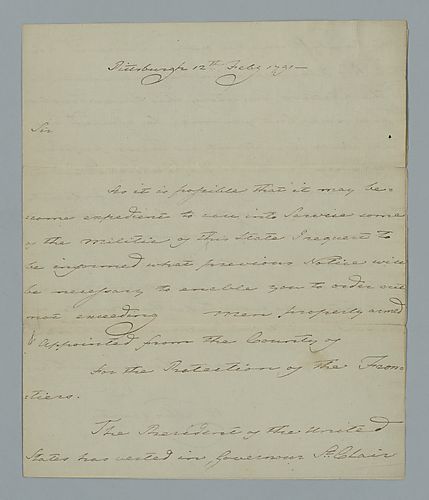 Pittsburgh 12th Feby 1791 —
Sir
As it is possible that it may be=
come expedient to call into Service some
of the Militia of this State I request to
be informed what previous Notice will
be necessary to enable you to order out
not exceeding men properly armed
& Appointed from the County of
for the Protection of the Fron=
tiers.
The President of the United
States has vested in Governour St. Clair